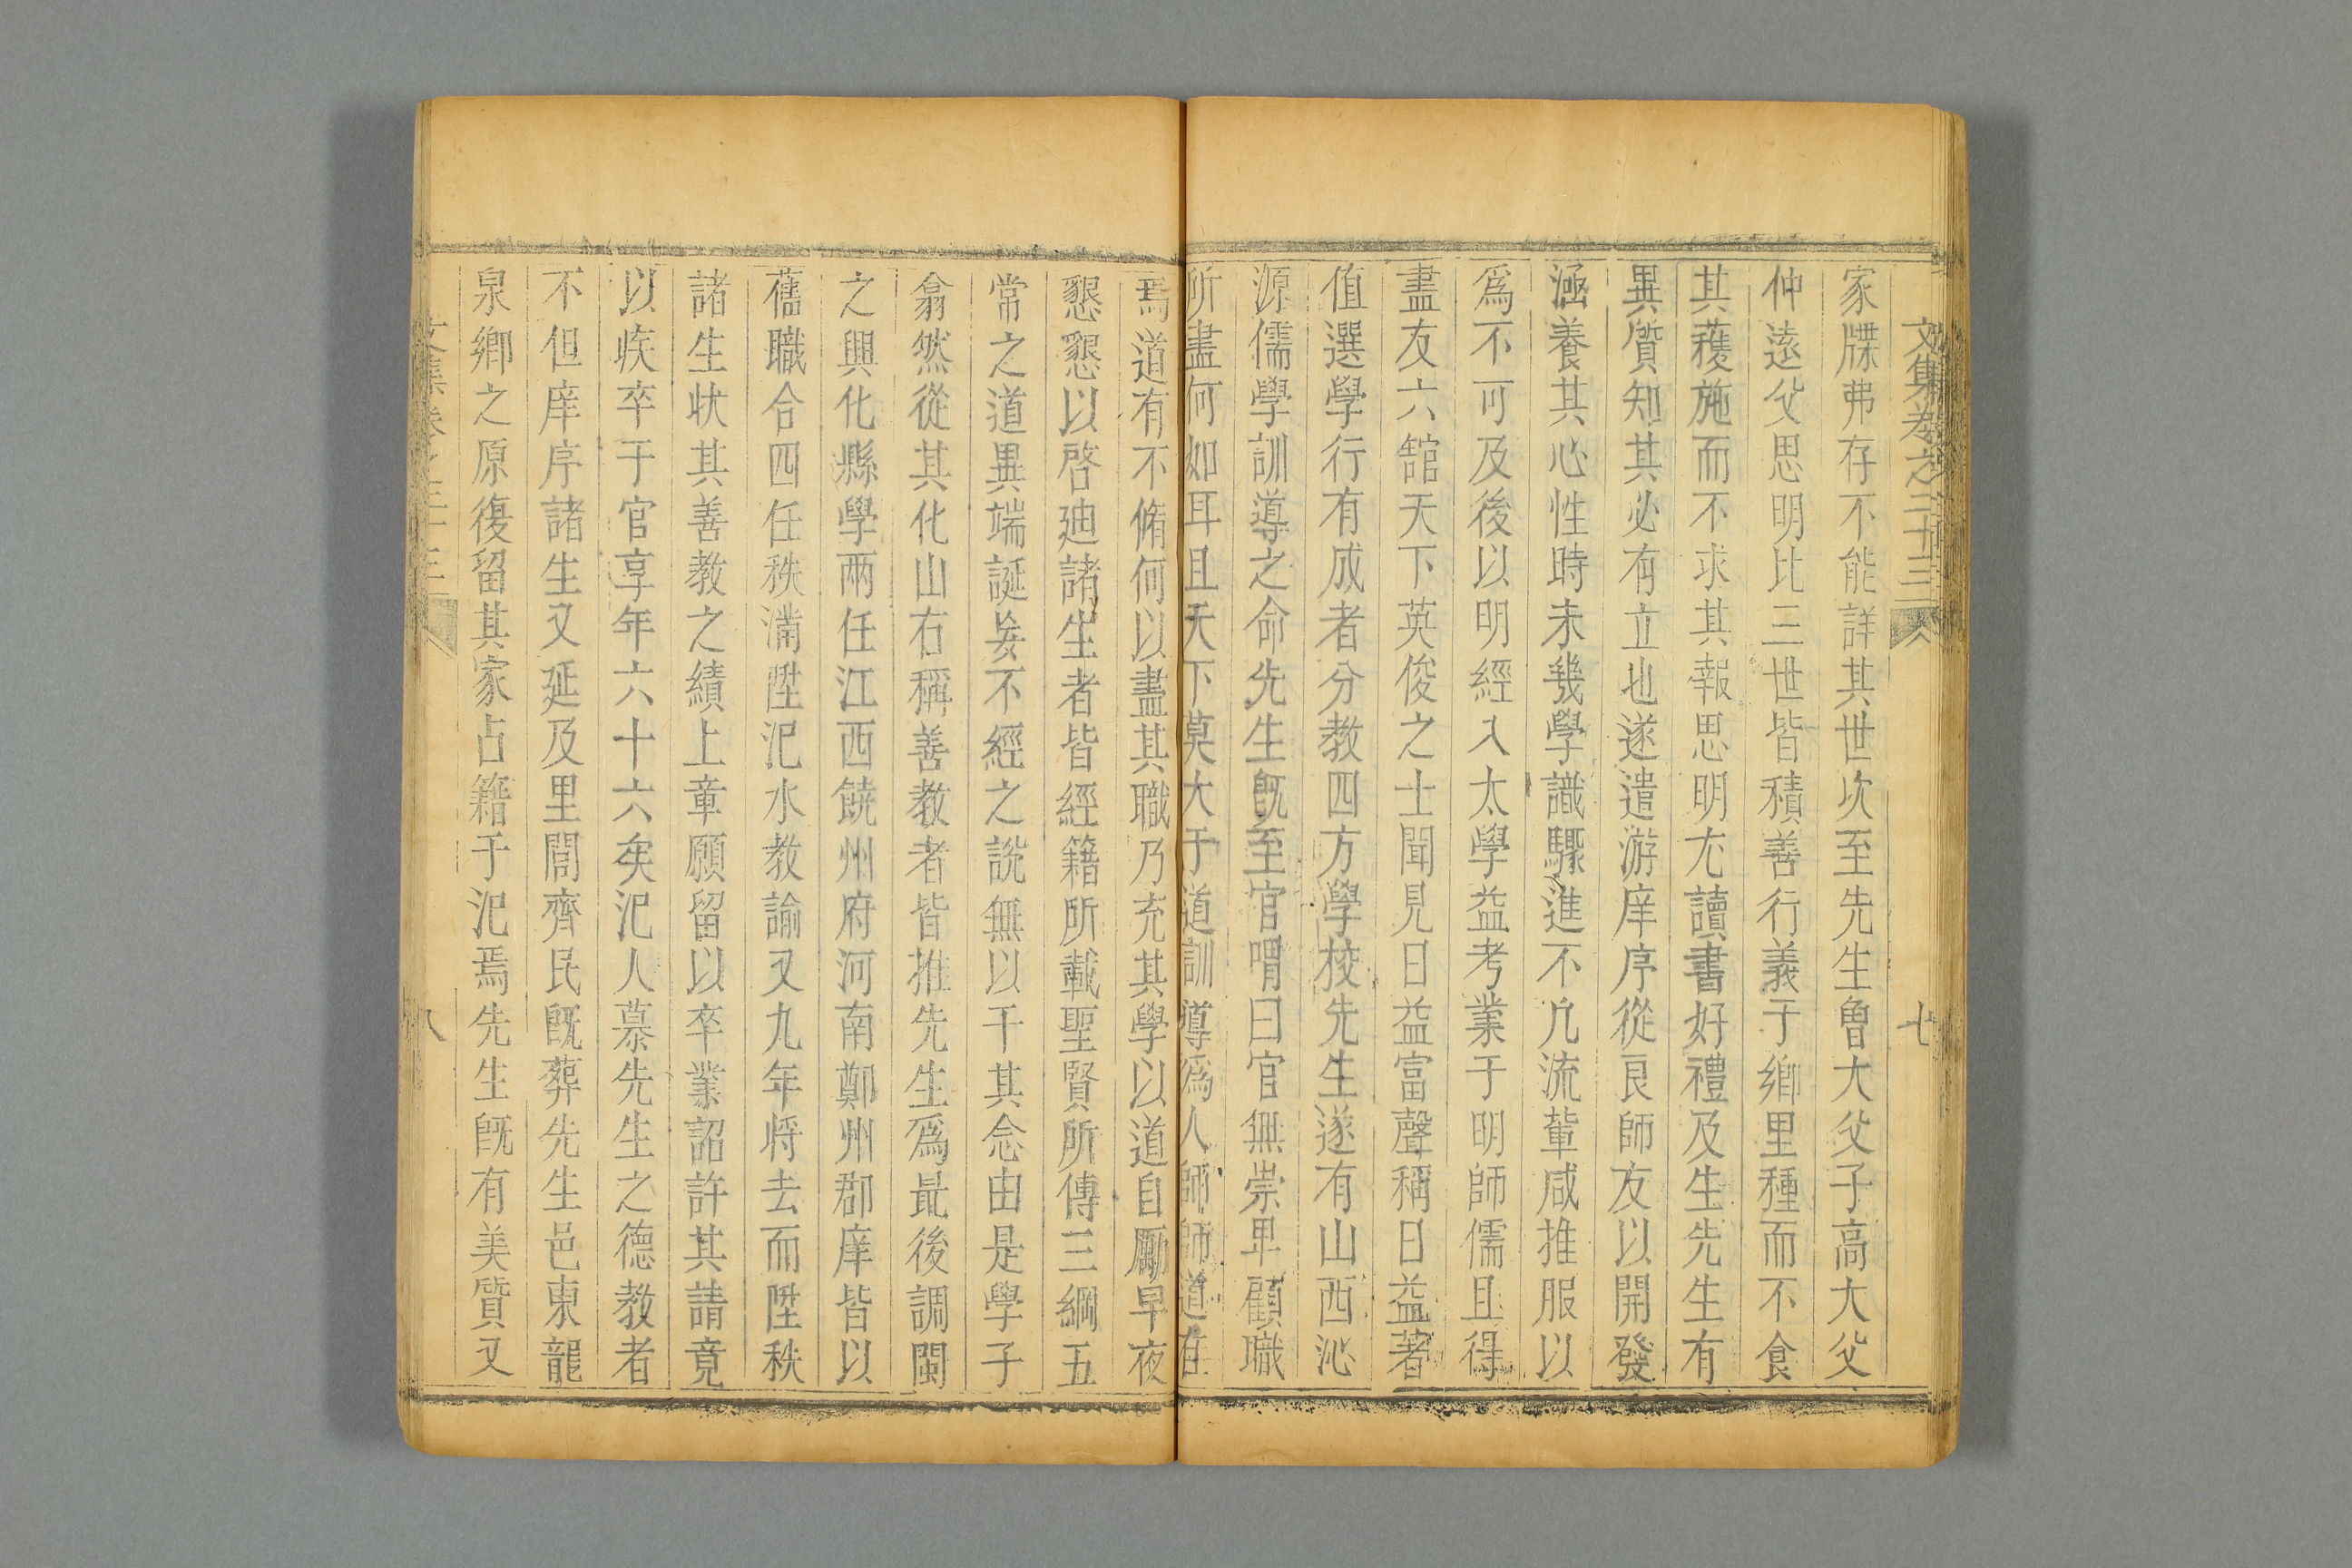 文集卷之二十三
七
家牒弗存不能詳其世次至先生魯大父子高大父
仲遠父思明比三世皆積善行義于鄉里種而不食
其穫施而不求其報思明尤讀書好禮及生先生有
異質知其必有立也遂遣游庠序從良師友以開發
涵養其心性時未幾學識驟進不凡流輩咸推服以
爲不可及後以明經入太學益考業于明師儒且得
盡友六舘天下英俊之士聞見日益富聲稱日益著
值選學行有成者分教四方學校先生遂有山西沁
源儒學訓導之命先生旣至官喟曰官無崇卑顧職
所盡何如耳且天下莫大于道訓導爲人師師道在
焉道有不脩何以盡其職乃充其學以道自勵早夜
懇懇以啓廸諸生者皆經籍所載聖賢所傳三綱五
常之道異端誕妄不經之說無以干其念由是學子
翕然從其化山右稱善教者皆推先生爲最後調閩
之興化縣學兩任江西饒州府河南鄭州郡庠皆以
舊職合四任秩滿陞汜水教諭又九年將去而陞秩
諸生狀其善教之績上章願留以卒業詔許其請竟
以疾卒于官享年六十六矣汜人慕先生之德教者
不但庠序諸生又延及里閭齊民旣葬先生邑東龍
泉鄉之原復留其家占籍于汜焉先生旣有美質又
文集卷之二十三
八